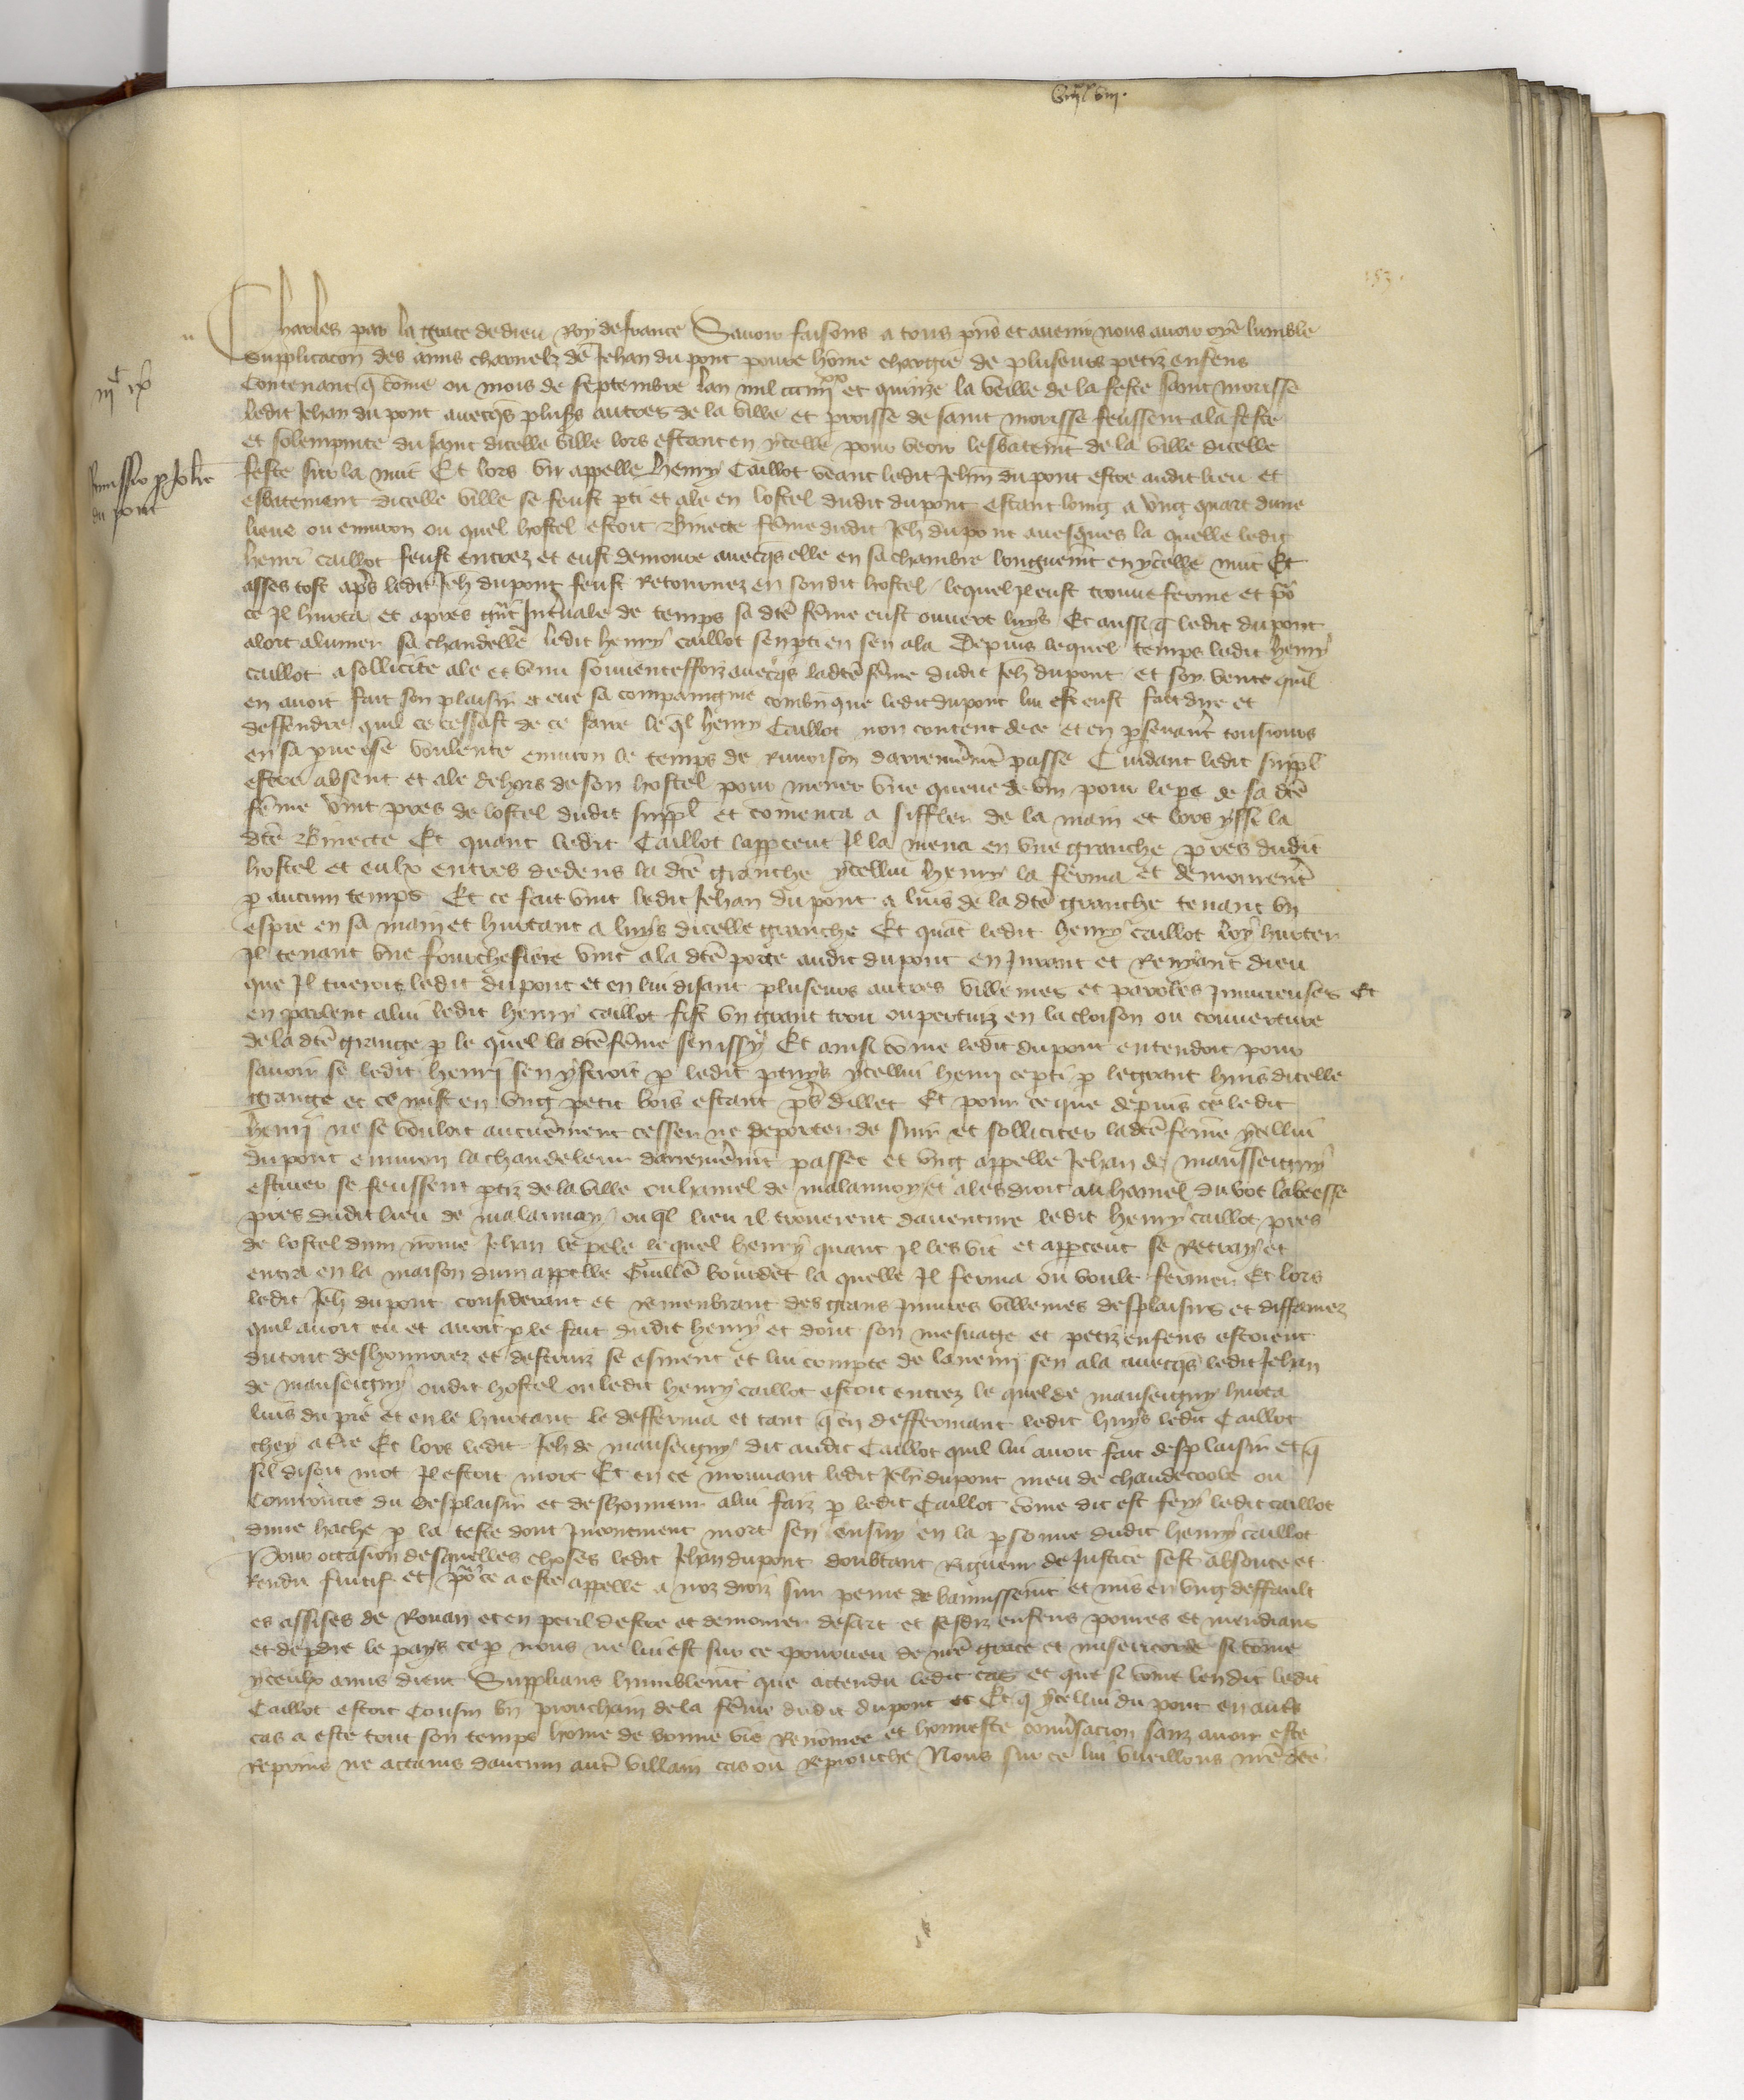 153.
Charles par la grace de dieu Roy de france Savoir faisons a tous pñs et avenir nous avoir oye lumble
Supplicacon des amis charnelz de Jehan du pont povre hõme chargie de pluseurs petiz enfens
Contenant q̃ cõme ou mois de septembre lan mil ccc iiii xx et quinze la veille de la feste saint morisse
ledit Jehan du pont avecqs plus̃s autres de la ville et proisse de saint morisse feussent a la feste
et solempnite du saint dicelle ville lors estant en ycelle pour veoir lesbatem̃t de la ville dicelle
feste sur la nuit Et lors un appelle henry Caillot veant ledit Jehan du pont estre audit lieu et
esbatement dicelle ville se feust pti et ale en lostel dudit du pont estant loing a ung quart dune
lieue ou environ ou quel hostel estoit Binecte fẽme dudit Jeh du pont avesques la quelle ledit
henri caillot feust entrez et eust demoure avecqs elle en sa chambre longuem̃t en ycelle nuit Et
asses tost aps ledit Jeh du pont feust retournez en son dit hostel lequel il eust trouve ferme et põ
ce Il hurta et apres gñt Intvale de temps sa dtẽ fẽme eust ouvert luys Et aussi q̃ ledit du pont
aloit alumer sa chandelle ledit henry caillot sen pti en sen ala Depuis lequel temps ledit henry
caillot a sollicite ale et venu souventeffoiz avecqs ladtẽ fẽme dudit Jeh du pont et soy vente quil
en avoit fait son plaisir et eue sa compaingnie combñ que ledit du pont lui est eust fait dire et
deffendre quil ce cessast de ce faire le q̃l henry Caillot non content de ce et en psevant tousiours
en sa pverse voulente environ le temps de rouvoison darrenem̃t passe Cuidant ledit suppl
estre absent et ale dehors de son hostel pour mener une queue de vin pour le pe de sa dtẽ
fẽme vint pres de lostel dudit suppl et cõmenca a siffler de la main et lors yssi la
dtẽ Binecte Et quant ledit Caillot lappceut Il la mena en une granche pres dudit
hostel et eulx entres dedens la dtẽ granche ycellui henry la ferma et demourent
p aucun temps Et ce fait vint ledit Jehan du pont a luis de la dtẽ granche tenant un
espie en sa main et hurtant a luys dicelle granche Et quãt ledit henry caillot loy hurter
Il tenant une fourchefiere vint a la dtẽ porte audit du pont en Jurant et renyant dieu
que Il tueroit ledit du pont et en lui disant pluseurs autres villenies et paroles iniurieuses Et
en parlent a lui ledit henry caillot fist un grant trou ou pertuiz en la cloison ou couverture
de la dtẽ grange p le quel la dtẽ fẽme sen issy Et ainsi cõme ledit du pont entendoit pour
savoir se ledit henri sen ysteroit p ledit ptuys ycellui henri ce pti p le grant huis dicelle
grange et ce mist en ung petit bois estant ps dillec Et pour ce que depuis ce ledit
henri ne se vouloit aucuẽment cesser ne deporter de suir et solliciter ladtẽ femme ycellui
du pont environ la chandeleur darrenem̃t passee et ung appelle Jehan de mausseigny
estuver se feussent ptiz de la ville ou hamel de malannoy et ales droit au hamel du bot labeesse
pres dudit lieu de malannay ou q̃l lieu il trouverent daventure ledit henry caillot pres
de lostel dun nõme Jehan le pele lequel henry quant Il les vit et appceut se retray et
entra en la maison dun appelle Guillẽ bourdet la quelle Il ferma ou voult fermer Et lors
ledit Jeh du pont considerant et remenbrant des grans iniures villenies desplaisirs et diffamez
quil avoit eu et avoit p le fait dudit henry et dont son mesnage et petiz enfens estoient
du tout deshonnorez et destruiz se esment et lui compte de lanemi sen ala avecqs ledit Jehan
de mauseigny oudit hostel ou ledit henry caillot estoit entrez le quel de mauseigny hurta
luis du pie et en le hurtant le defferma et tant q̃ en deffermant ledit huys ledit Caillot
chey a tre Et lors ledit Jeh de mauseigny dit audit Caillot quil lui avoit fait desplaisir et q̃
sil disoit mot Il estoit mort Et en ce mouvant ledit Jeh du pont meu de chaudecole ou
Courroucie du desplaisir et deshonneur a lui faiz p ledit Caillot cõme dit est fery ledit caillot
dune hache p la teste dont Incontinent mort sen ensuy en la psonne dudit henry caillot
Pour occasion desquelles choses ledit Jehan du pont doubtant rigueur de Justice sest absente et
rendu fuitif et põ ce a este appelle a noz droiz sur peine de bannissem̃t et mis en ung deffault
es assises de Rouan et en peril destre et demourer desert et sesdiz enfens povres et mendians
et de pdre le pays ce p nous ne lui est sur ce pourveu de nr̃e grace et misericorde si cõme
yceulx amis dient Supplians humblem̃t que attendu ledit cas et que si cõme len dit ledit
Caillot estoit Cousin bñ prouchain de la fẽme dudit du pont et Et q̃ ycellui du pont en auts
cas a este tout son temps hõme de bonne vie renõmee et honneste convsacion sanz avoir este
reprins ne attains daucun autre villain cas ou reprouche Nous sur ce lui vueillons nr̃e dtẽ
Remissio p Johẽ
du pont